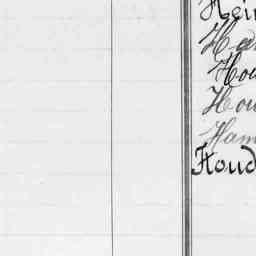 Hei
Ha
Ho
Hou
Ham
Houd